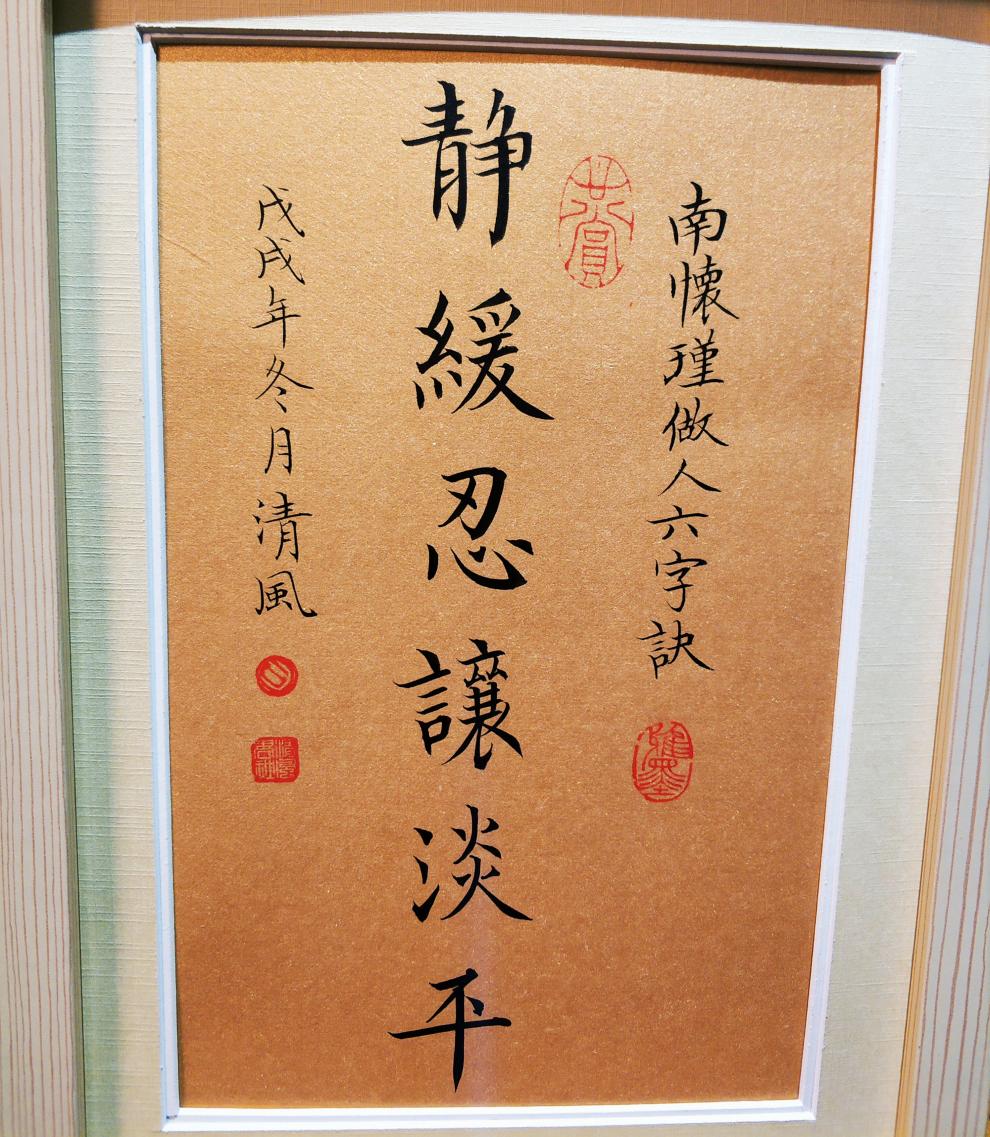 南懷瑾做人六字訣
靜緩忍讓淡平
戊戌年冬月清風